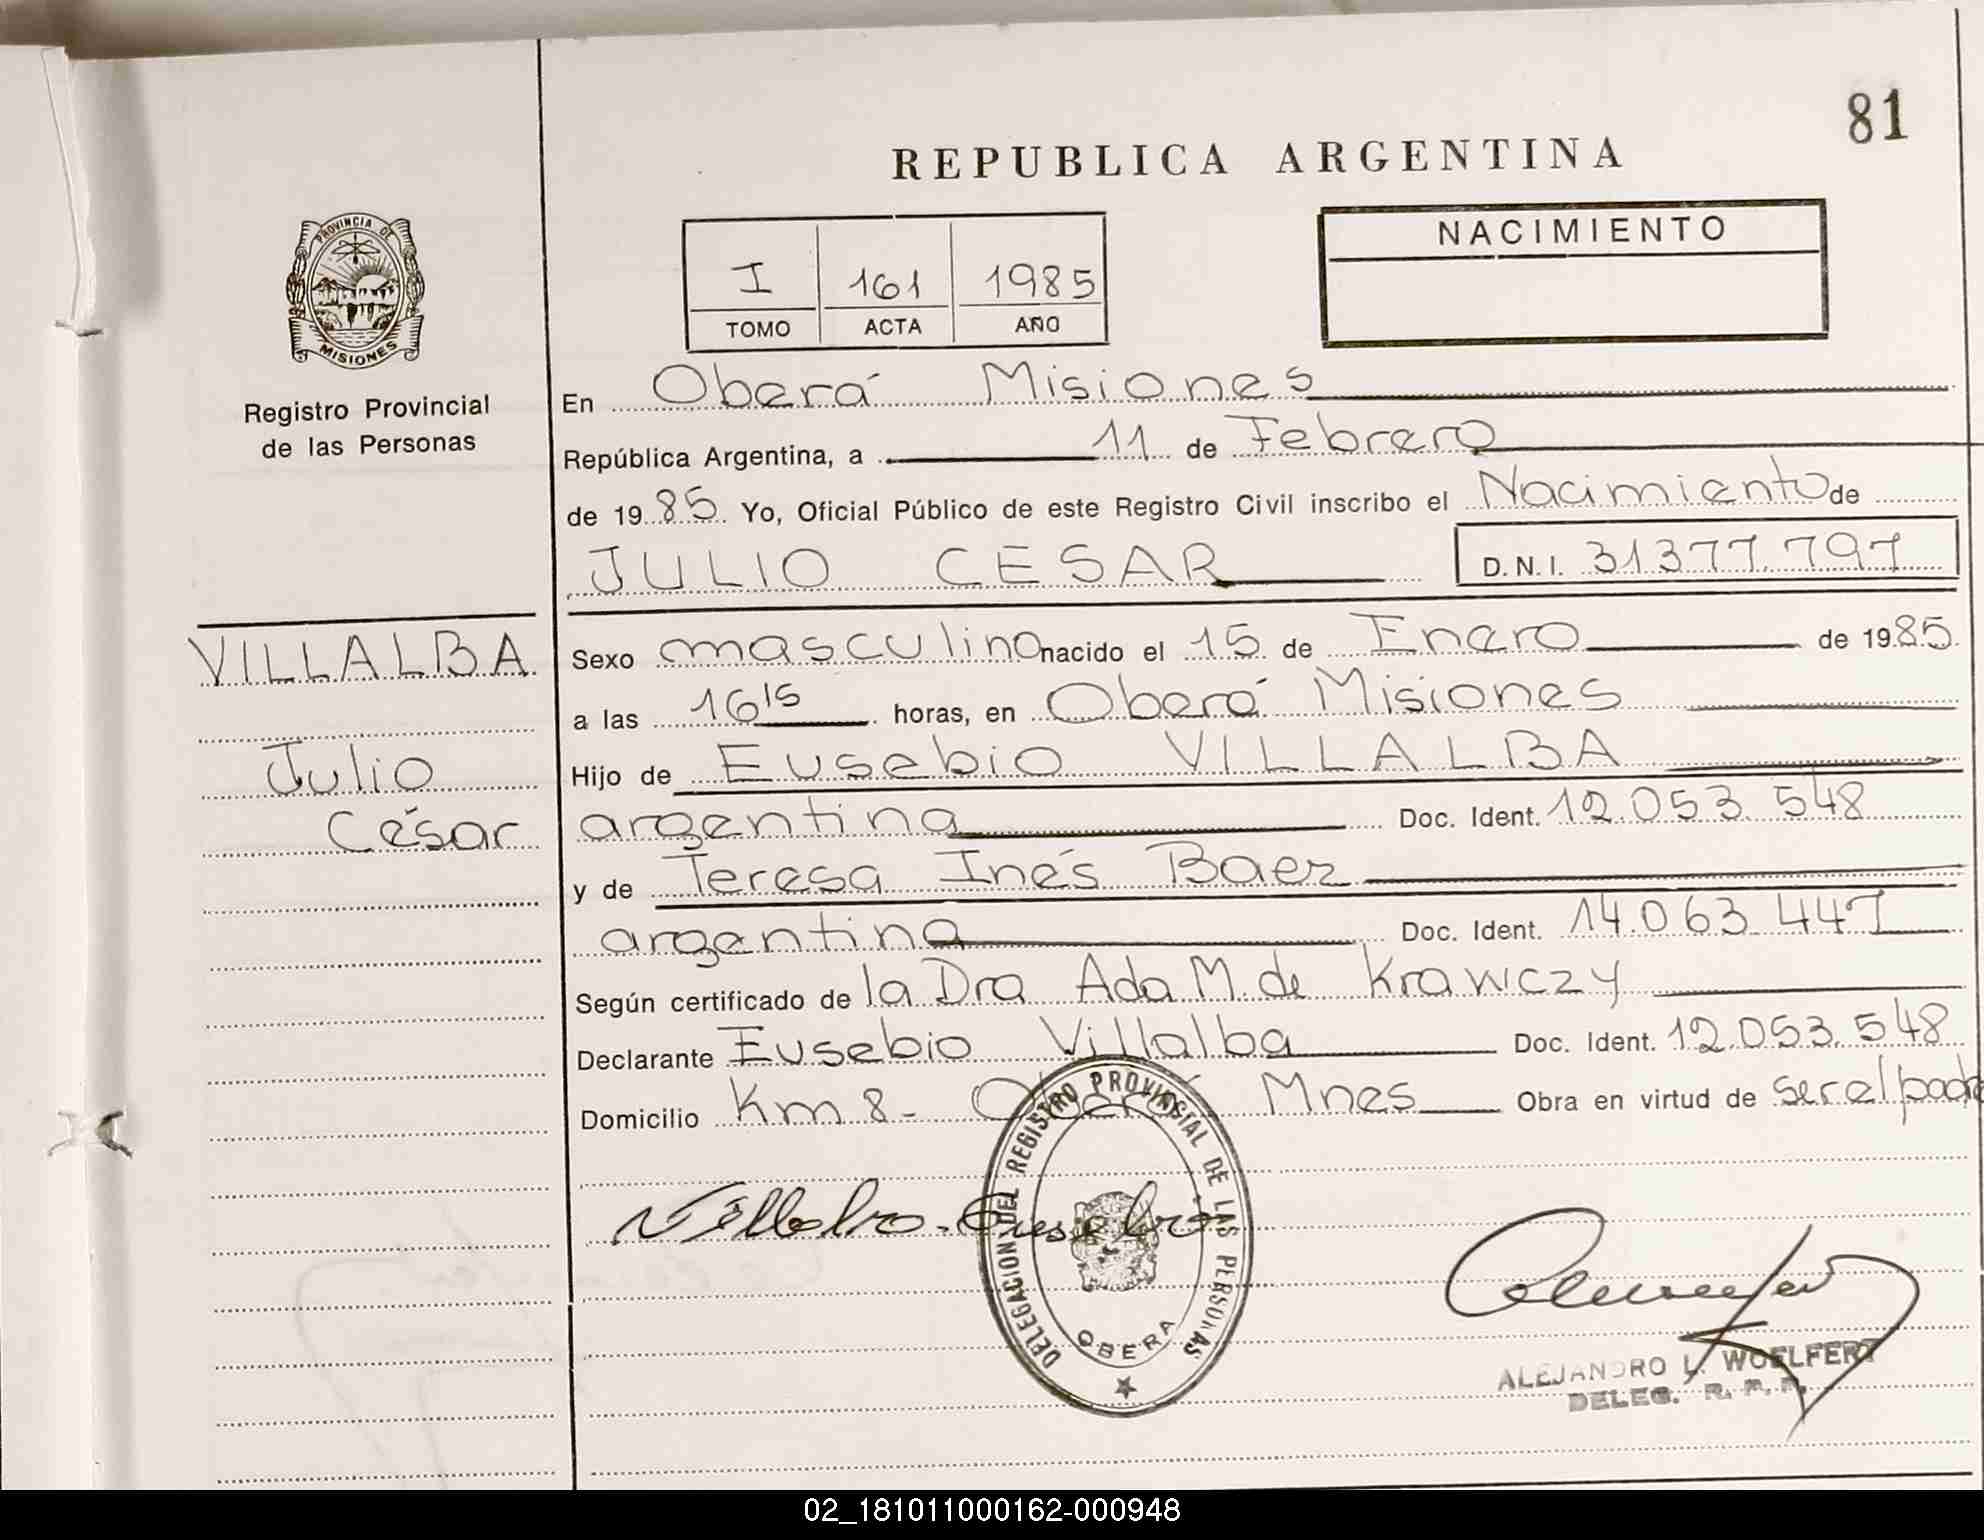 81
REPUBLICA ARGENTINA
PROVINCIA DE
MISIONES
Registro Provincial
de las Personas
I 161 1985
TOMO ACTA AÑO
NACIMIENTO
En Oberá Misiones
República Argentina, a 11 de Febrero
de 1985 Yo, Oficial Público de este Registro Civil inscribo el Nacimiento de
JULIO CESAR D.N.I. 31377.797
VILLALBA
Julio
César
Sexo masculino nacido el 15 de Enero de 1985
a las 16 15 horas, en Oberá Misiones
Hijo de Eusebio VILLALBA
argentina Doc. Ident. 12.053.548
y de Teresa Inés Baez
argentina Doc. Ident. 14.063.447
Según certificado de la Dra Ada M. de Krawczy
Declarante Eusebio Villalba Doc. Ident. 12.053.548
Domicilio Km 8 - Oberá Mnes Obra en virtud de ser el padre
Villalba Eusebio
DELEGACION DEL REGISTRO PROVINCIAL DE LAS PERSONAS
OBERA
ALEJANDRO L. WOELFERT
DELEG. R. P. P.
02_181011000162-000948